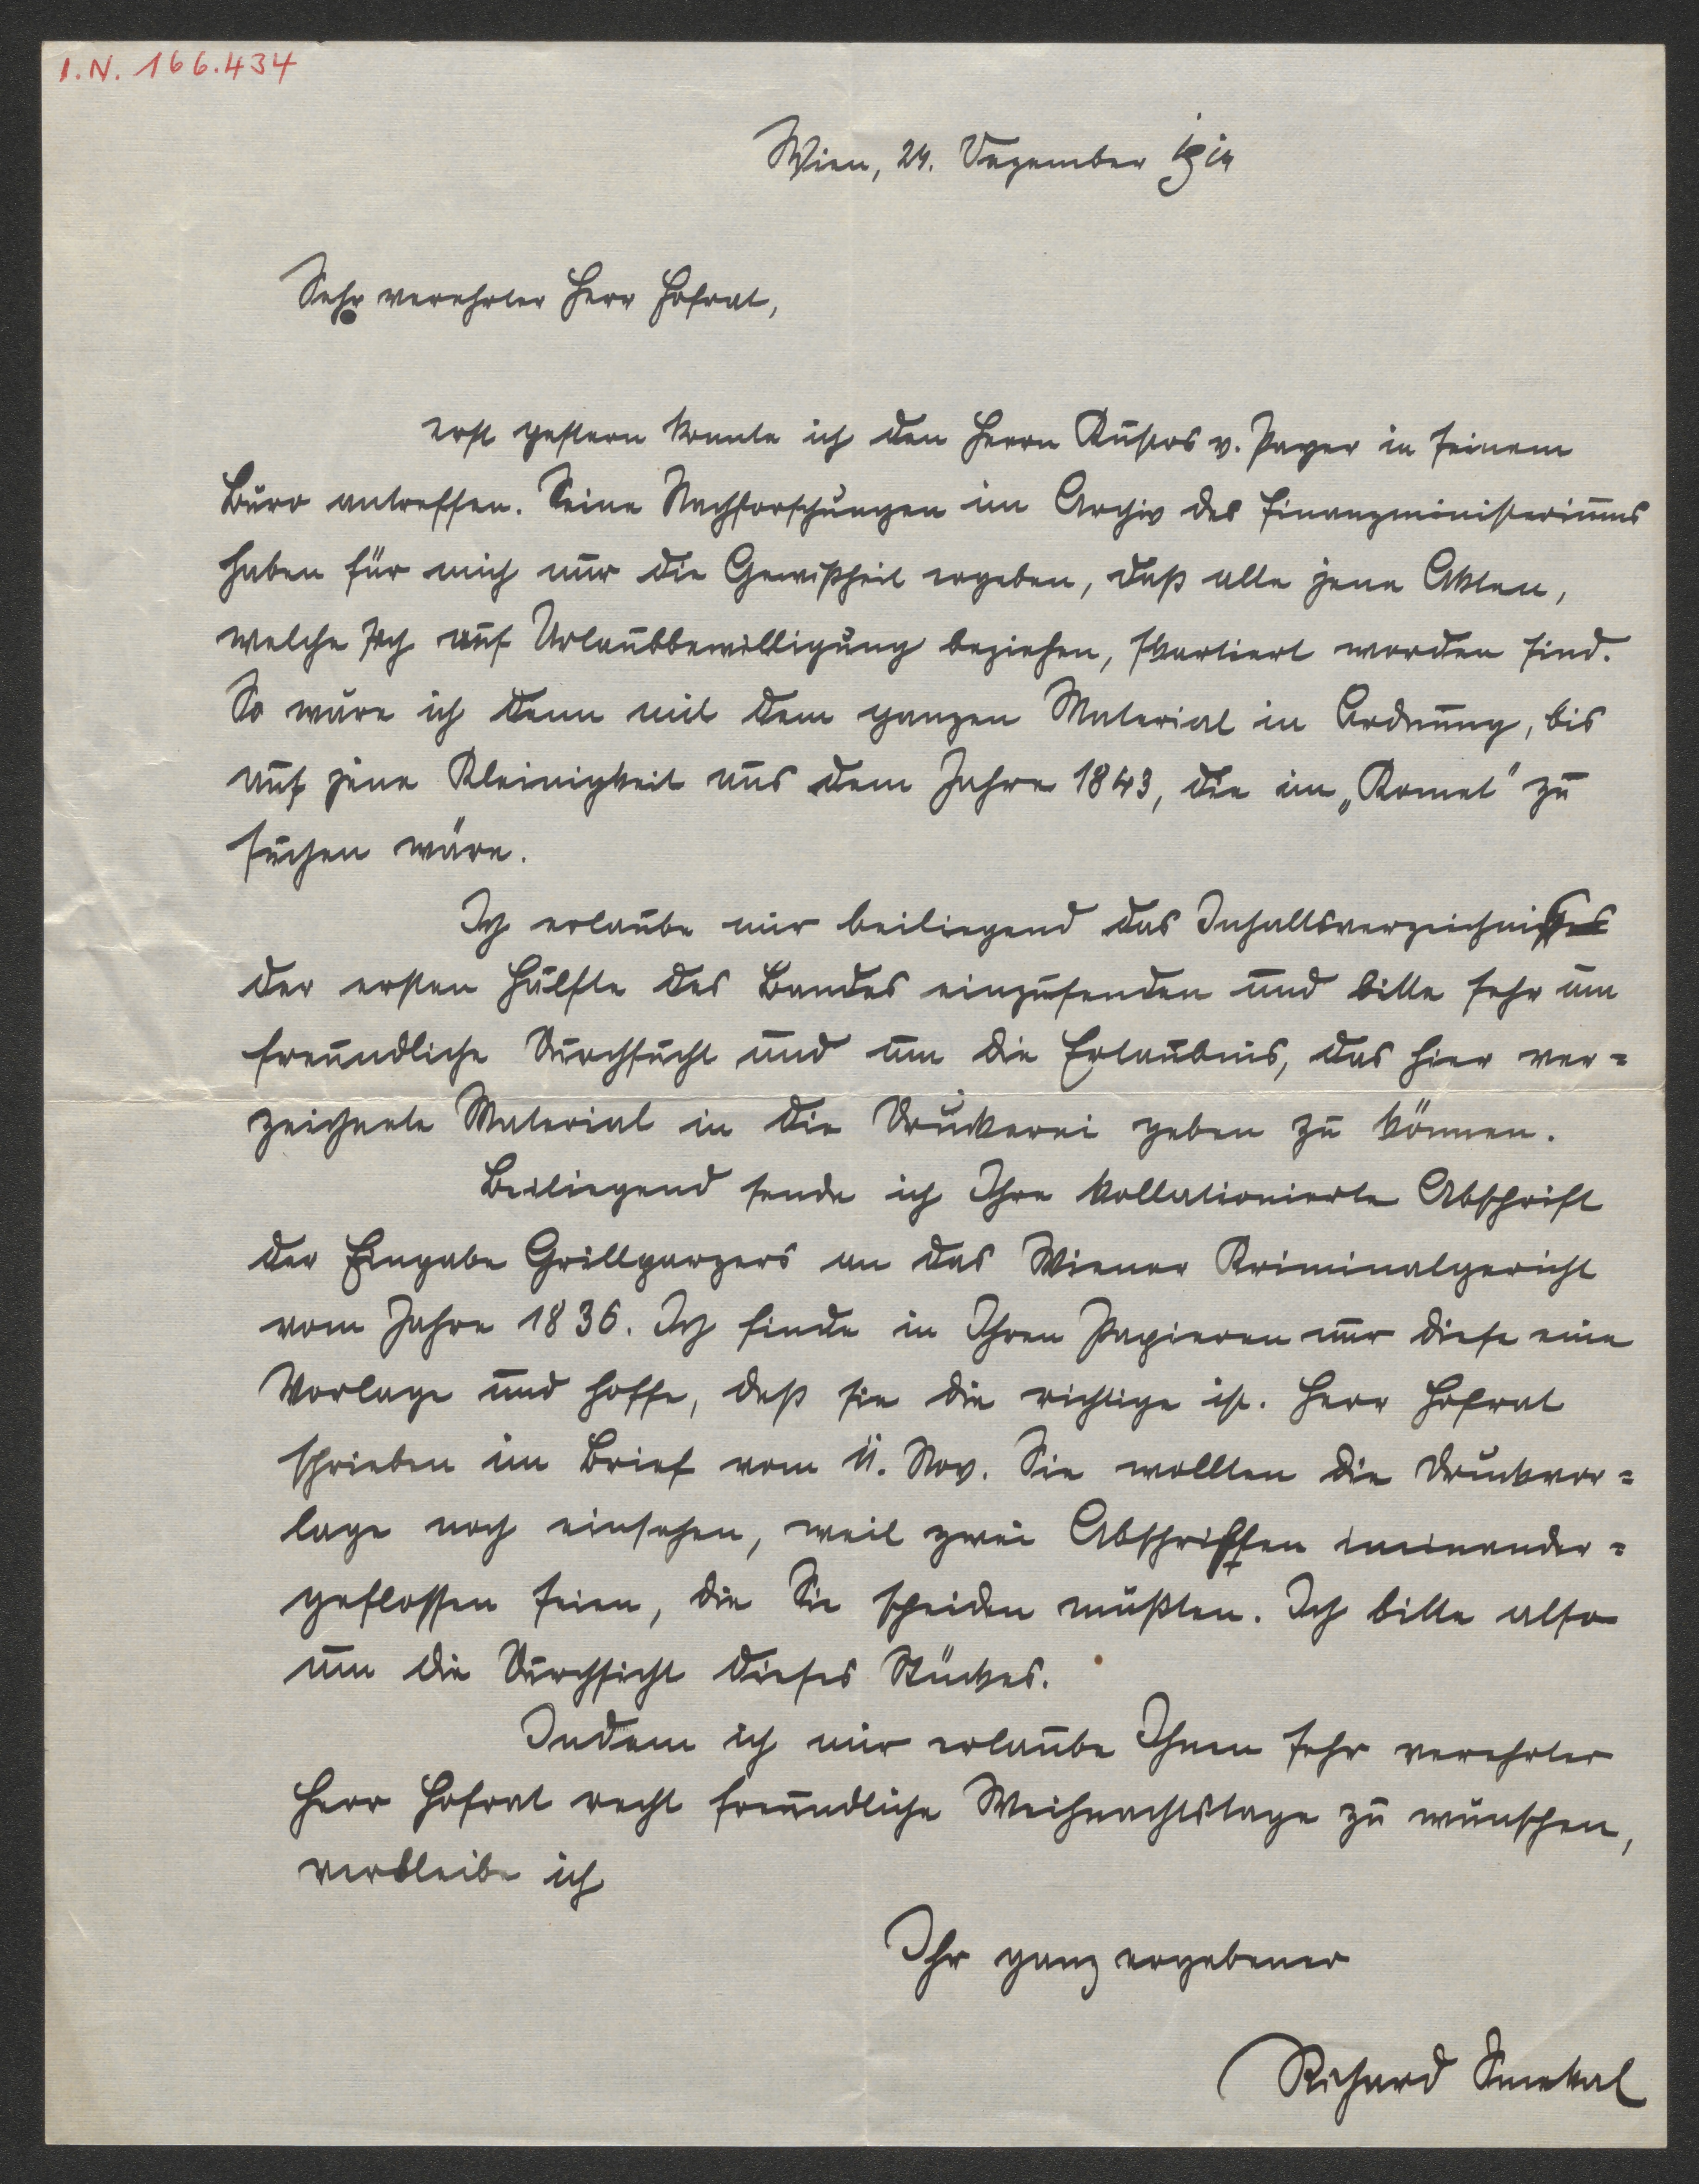 I.N. 166.434
Wien, 24. Dezember 1914
Sehr verehrter Herr Hofrat,
erst gestern konnte ich den Herrn Kustos v. Payer in seinem
Büro antreffen. Seine Nachforschungen im Archiv des Finanzministeriums
haben für mich nur die Gewißheit ergeben, daß alle jene Akten,
welche sich auf Urlaubbewilligung beziehen, skartiert worden sind.
So wäre ich denn mit dem ganzen Material in Ordnung, bis
auf jene Kleinigkeit aus dem Jahre 1843, die im „Komet" zu
suchen wäre.
Ich erlaube mir beiliegend das Inhaltsverzeichnis
der ersten Hälfte des Bandes einzusenden und bitte sehr um
freundliche Durchsicht und um die Erlaubnis, das hier ver=
zeichnete Material in die Druckerei geben zu können.
Beiliegend sende ich Ihre kollationierte Abschrift
der Eingabe Grillparzers an das Wiener Kriminalgericht
vom Jahre 1836. Ich finde in Ihren Papieren nur diese eine
Vorlage und hoffe, daß sie die richtige ist. Herr Hofrat
schrieben im Brief vom 11. Nov. Sie wollten die Druckvor=
lage noch einsehen, weil zwei Abschriften ineinander=
geflossen seien, die Sie scheiden müßten. Ich bitte also
um die Durchsicht dieses Stückes.
Indem ich mir erlaube Ihnen sehr verehrter
Herr Hofrat recht freundliche Weihnachtstage zu wünschen,
verbleibe ich
Ihr ganz ergebener
Richard Smekal